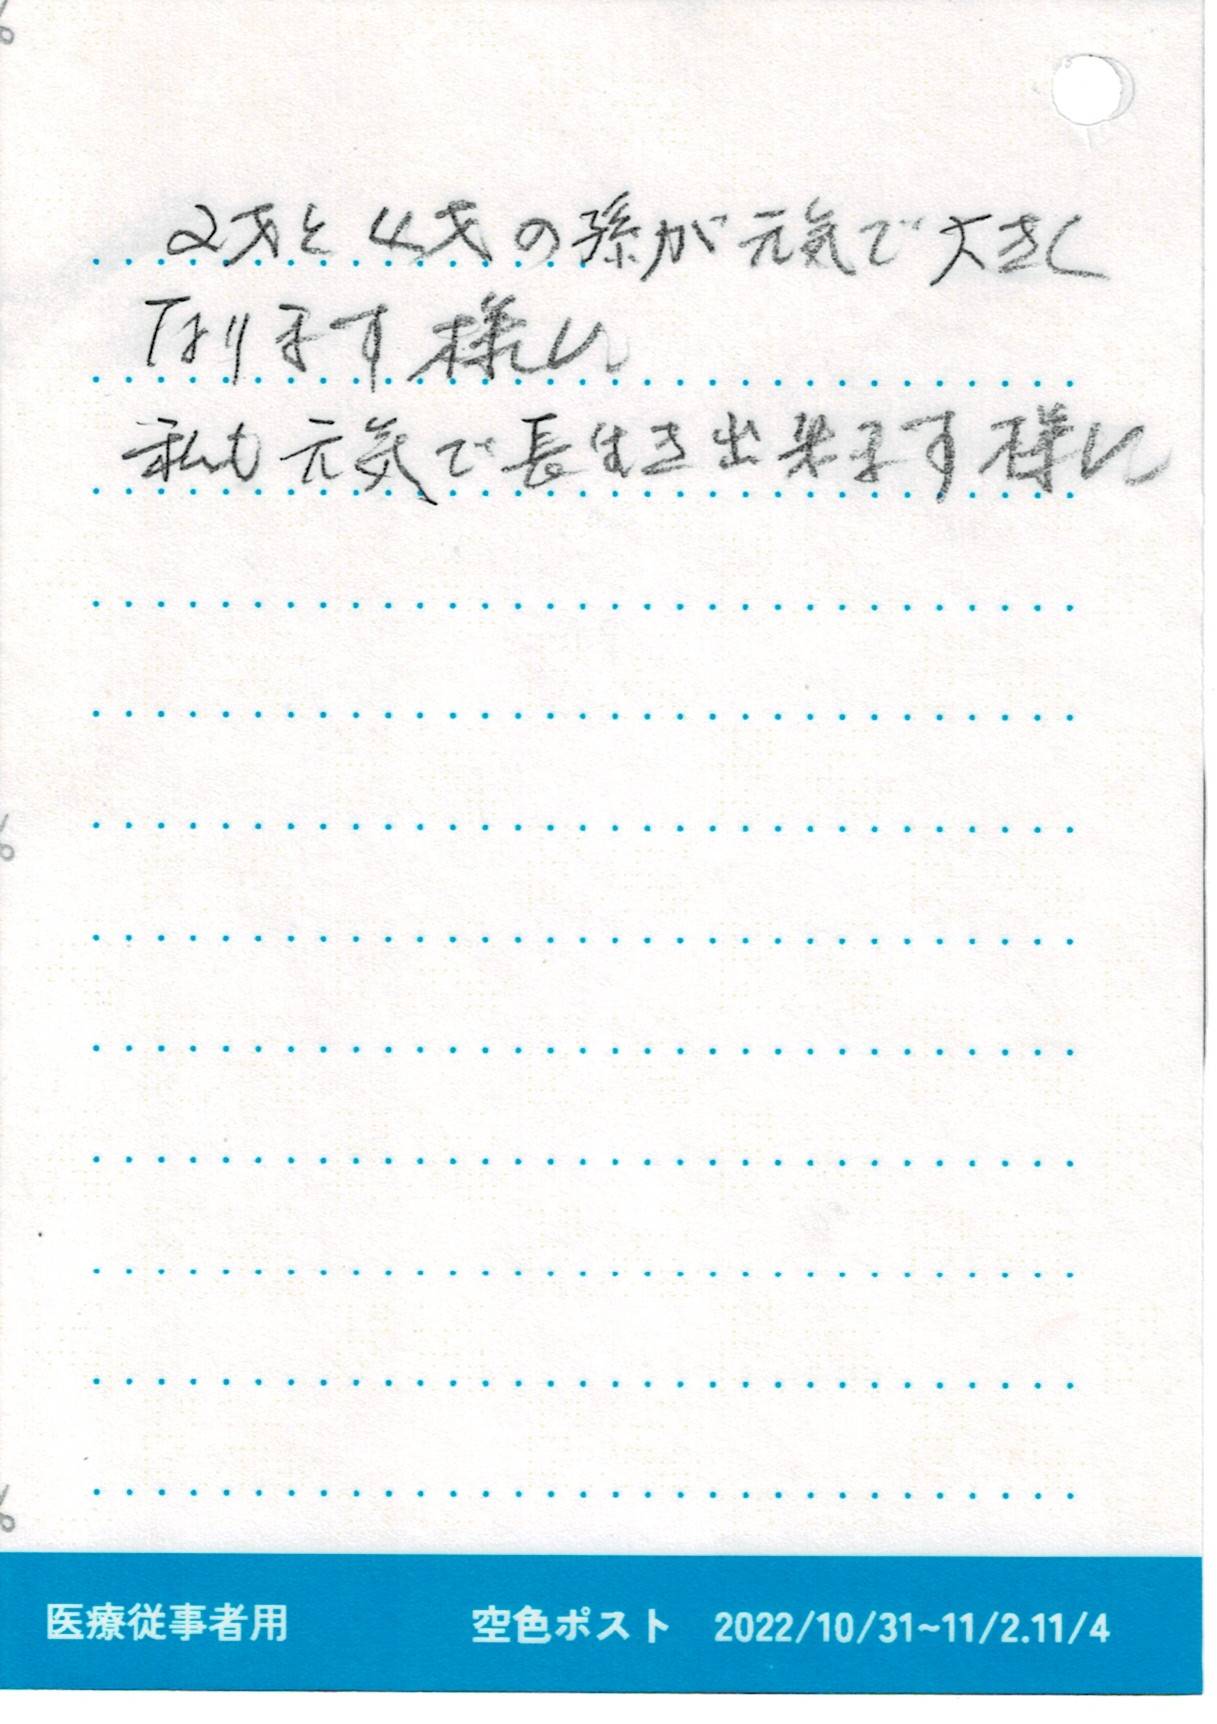 2才と4才の孫が元気で大きく
なります様に
私も元気で長生き出来ます様に
医療従事者用 空色ポスト 2022/10/31~11/2.11/4